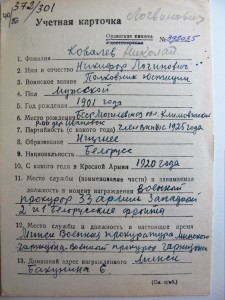 372/301
Логвинович
Учетная карточка
Орденская книжка
№
Ковалев Николай
2. Имя и отчество Никифор Логинович
3. Воинское звание Полковник юстиции
4. Пол Мужской
5. Год рождения 1901 года
6. Место рождения БССР Могилевской обл. Климовичский
р-он дер.
7. Партийность (с какого года) Член ВКП(б) с 1925 года
8. Образование Низшее
9. Национальность Белорус
10. С какого года в Красной Армии 1920 года
11. Место службы (наименование части) и занимаемая
должность к моменту награждения Военный
прокурор 33 армии Западный
2 и 1 Белорусские фронта
12. Место службы и должность в настоящее время
Минск Военная прокуратура Минского
гарнизона Военный прокурор гарнизона
13. Домашний адрес награжденного г. Минск
Бакунина 6.
(См. на об.)